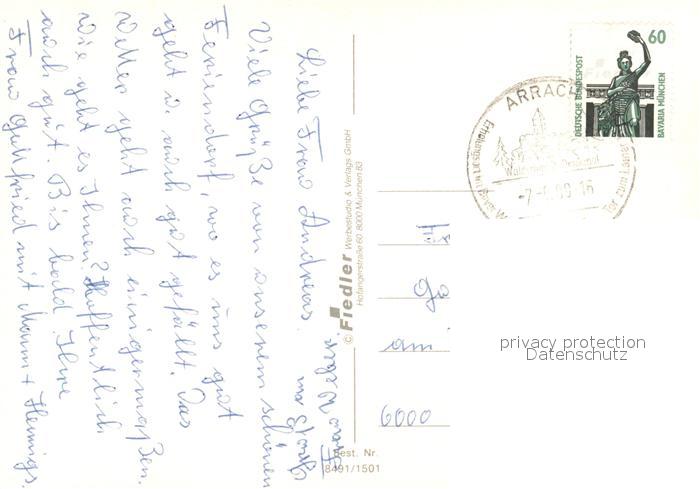 Liebe Frau Andreas.
Viele Grüße von unserem schönen
Feriendorf, wo es uns gut
geht u. auch gut gefällt. Das
Wetter geht auch einigermaßen.
Wie geht es Ihnen? Hoffentlich
auch gut. Bis bald Ihre
Frau Gottfried mit Mann + Hennigs.
Frau Weber
© Fiedler Werbestudio & Verlags GmbH
Hofangerstraße 60 8000 München 83
Best. Nr.
8491/1501
60
DEUTSCHE BUNDESPOST
BAYARIA MÜNCHEN
ARRACH
-16
am
6000
privacy protection
Datenschutz